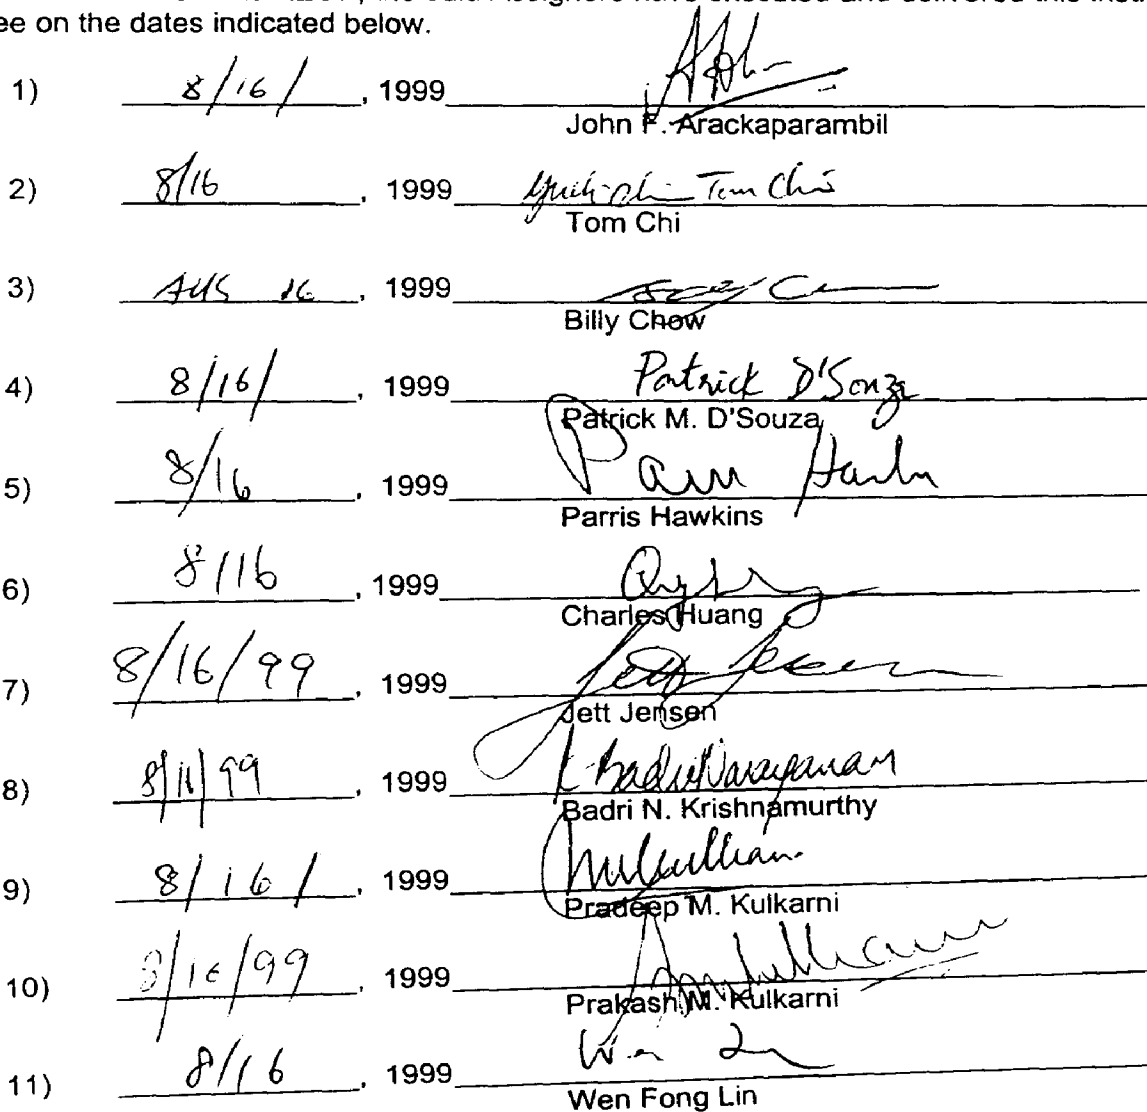 ee on the dates indicated below.
1) 8/16/ , 1999
John F. Arackaparambil
2) 8/16 , 1999 Tom Chi
Tom Chi
3) AUG 16 , 1999
Billy Chow
4) 8/16/ , 1999 Patrick D'Souza
Patrick M. D'Souza
5) 8/16 , 1999
Parris Hawkins
6) 8/16 , 1999
Charles Huang
7) 8/16/99 , 1999 Jett Jensen
Jett Jensen
8) 8/16/99 , 1999 K BadriNarayanan
Badri N. Krishnamurthy
9) 8/16/ , 1999
Pradeep M. Kulkarni
10) 8/16/99 , 1999
Prakash M. Kulkarni
11) 8/16 , 1999
Wen Fong Lin